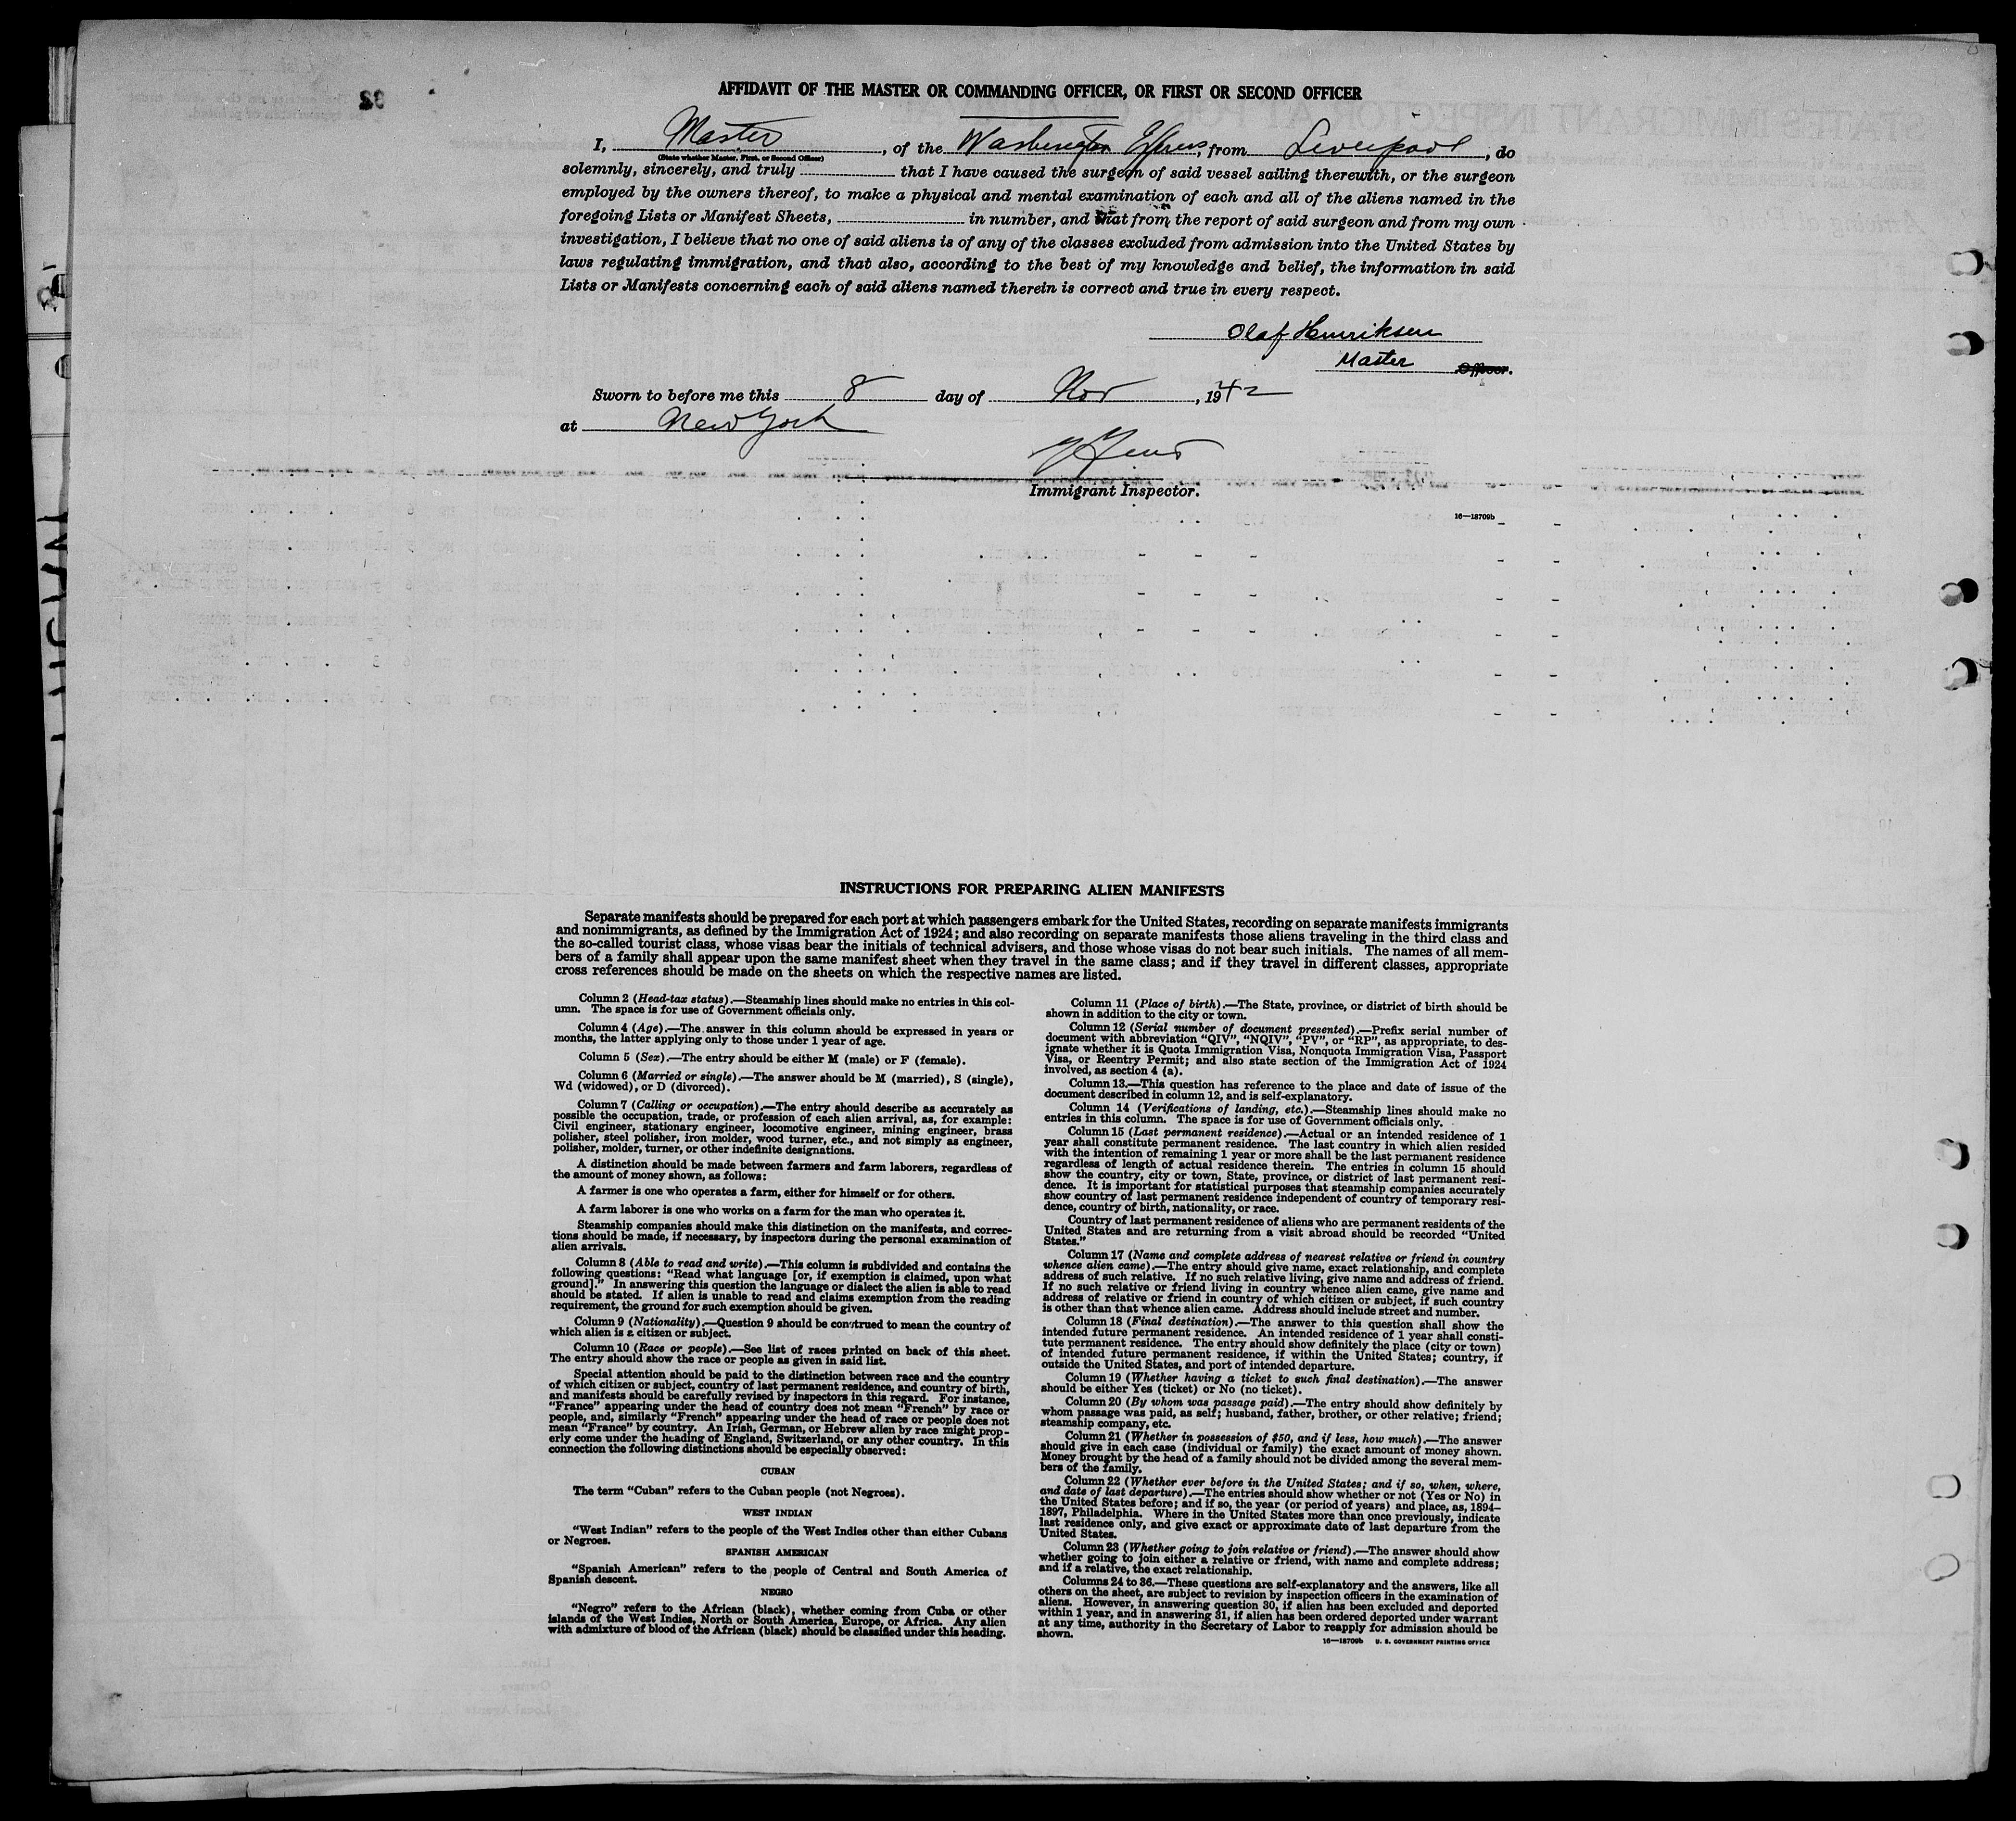 AFFIDAVIT OF THE MASTER OR COMMANDING OFFICER, OR FIRST OR SECOND OFFICER
I, Master, of the Washington Express, from Liverpool, do
(State whether Master, First, or Second Officer)
solemnly, sincerely, and truly that I have caused the surgeon of said vessel sailing therewith, or the surgeon
employed by the owners thereof, to make a physical and mental examination of each and all of the aliens named in the
foregoing Lists or Manifest Sheets, in number, and that from the report of said surgeon and from my own
investigation, I believe that no one of said aliens is of any of the classes excluded from admission into the United States by
laws regulating immigration, and that also, according to the best of my knowledge and belief, the information in said
Lists or Manifests concerning each of said aliens named therein is correct and true in every respect.
Olaf Henriksen
Master Officer.
Sworn to before me this 8 day of Nov, 1942
at New York
Immigrant Inspector.
16—18709b
INSTRUCTIONS FOR PREPARING ALIEN MANIFESTS
Separate manifests should be prepared for each port at which passengers embark for the United States, recording on separate manifests immigrants
and nonimmigrants, as defined by the Immigration Act of 1924; and also recording on separate manifests those aliens traveling in the third class and
the so-called tourist class, whose visas bear the initials of technical advisers, and those whose visas do not bear such initials. The names of all mem-
bers of a family shall appear upon the same manifest sheet when they travel in the same class; and if they travel in different classes, appropriate
cross references should be made on the sheets on which the respective names are listed.
Column 2 (Head-tax status).—Steamship lines should make no entries in this col-
umn. The space is for use of Government officials only.
Column 4 (Age).—The answer in this column should be expressed in years or
months, the latter applying only to those under 1 year of age.
Column 5 (Sex).—The entry should be either M (male) or F (female).
Column 6 (Married or single).—The answer should be M (married), S (single),
Wd (widowed), or D (divorced).
Column 7 (Calling or occupation).—The entry should describe as accurately as
possible the occupation, trade, or profession of each alien arrival, as, for example:
Civil engineer, stationary engineer, locomotive engineer, mining engineer, brass
polisher, steel polisher, iron molder, wood turner, etc., and not simply as engineer,
polisher, molder, turner, or other indefinite designations.
A distinction should be made between farmers and farm laborers, regardless of
the amount of money shown, as follows:
A farmer is one who operates a farm, either for himself or for others.
A farm laborer is one who works on a farm for the man who operates it.
Steamship companies should make this distinction on the manifests, and correc-
tions should be made, if necessary, by inspectors during the personal examination of
alien arrivals.
Column 8 (Able to read and write).—This column is subdivided and contains the
following questions: "Read what language [or, if exemption is claimed, upon what
ground]." In answering this question the language or dialect the alien is able to read
should be stated. If alien is unable to read and claims exemption from the reading
requirement, the ground for such exemption should be given.
Column 9 (Nationality).—Question 9 should be construed to mean the country of
which alien is a citizen or subject.
Column 10 (Race or people).—See list of races printed on back of this sheet.
The entry should show the race or people as given in said list.
Special attention should be paid to the distinction between race and the country
of which citizen or subject, country of last permanent residence, and country of birth,
and manifests should be carefully revised by inspectors in this regard. For instance,
"France" appearing under the head of country does not mean "French" by race or
people, and, similarly "French" appearing under the head of race or people does not
mean "France" by country. An Irish, German, or Hebrew alien by race might prop-
erly come under the heading of England, Switzerland, or any other country. In this
connection the following distinctions should be especially observed:
CUBAN
The term "Cuban" refers to the Cuban people (not Negroes).
WEST INDIAN
"West Indian" refers to the people of the West Indies other than either Cubans
or Negroes.
SPANISH AMERICAN
"Spanish American" refers to the people of Central and South America of
Spanish descent.
NEGRO
"Negro" refers to the African (black), whether coming from Cuba or other
islands of the West Indies, North or South America, Europe, or Africa. Any alien
with admixture of blood of the African (black) should be classified under this heading.
Column 11 (Place of birth).—The State, province, or district of birth should be
shown in addition to the city or town.
Column 12 (Serial number of document presented).—Prefix serial number of
document with abbreviation "QIV", "NQIV", "PV", or "RP", as appropriate, to des-
ignate whether it is Quota Immigration Visa, Nonquota Immigration Visa, Passport
Visa, or Reentry Permit; and also state section of the Immigration Act of 1924
involved, as section 4 (a).
Column 13.—This question has reference to the place and date of issue of the
document described in column 12, and is self-explanatory.
Column 14 (Verifications of landing, etc.).—Steamship lines should make no
entries in this column. The space is for use of Government officials only.
Column 15 (Last permanent residence).—Actual or an intended residence of 1
year shall constitute permanent residence. The last country in which alien resided
with the intention of remaining 1 year or more shall be the last permanent residence
regardless of length of actual residence therein. The entries in column 15 should
show the country, city or town, State, province, or district of last permanent resi-
dence. It is important for statistical purposes that steamship companies accurately
show country of last permanent residence independent of country of temporary resi-
dence, country of birth, nationality, or race.
Country of last permanent residence of aliens who are permanent residents of the
United States and are returning from a visit abroad should be recorded "United
States."
Column 17 (Name and complete address of nearest relative or friend in country
whence alien came).—The entry should give name, exact relationship, and complete
address of such relative. If no such relative living, give name and address of friend.
If no such relative or friend living in country whence alien came, give name and
address of relative or friend in country of which citizen or subject, if such country
is other than that whence alien came. Address should include street and number.
Column 18 (Final destination).—The answer to this question shall show the
intended future permanent residence. An intended residence of 1 year shall consti-
tute permanent residence. The entry should show definitely the place (city or town)
of intended future permanent residence, if within the United States; country, if
outside the United States, and port of intended departure.
Column 19 (Whether having a ticket to such final destination).—The answer
should be either Yes (ticket) or No (no ticket).
Column 20 (By whom was passage paid).—The entry should show definitely by
whom passage was paid, as self; husband, father, brother, or other relative; friend;
steamship company, etc.
Column 21 (Whether in possession of $50, and if less, how much).—The answer
should give in each case (individual or family) the exact amount of money shown.
Money brought by the head of a family should not be divided among the several mem-
bers of the family.
Column 22 (Whether ever before in the United States; and if so, when, where,
and date of last departure).—The entries should show whether or not (Yes or No) in
the United States before; and if so, the year (or period of years) and place, as, 1894–
1897, Philadelphia. Where in the United States more than once previously, indicate
last residence only, and give exact or approximate date of last departure from the
United States.
Column 23 (Whether going to join relative or friend).—The answer should show
whether going to join either a relative or friend, with name and complete address;
and if a relative, the exact relationship.
Columns 24 to 36.—These questions are self-explanatory and the answers, like all
others on the sheet, are subject to revision by inspection officers in the examination of
aliens. However, in answering question 30, if alien has been excluded and deported
within 1 year, and in answering 31, if alien has been ordered deported under warrant
at any time, authority in the Secretary of Labor to reapply for admission should be
shown.
16—18709b U. S. GOVERNMENT PRINTING OFFICE